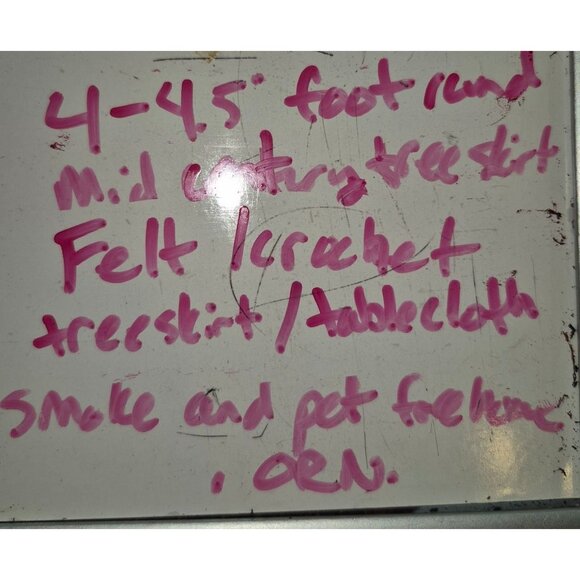 4-4.5' foot round
Mid century tree skirt
Felt /crochet
treeskirt/tablecloth
smoke and pet free home
. ORN.